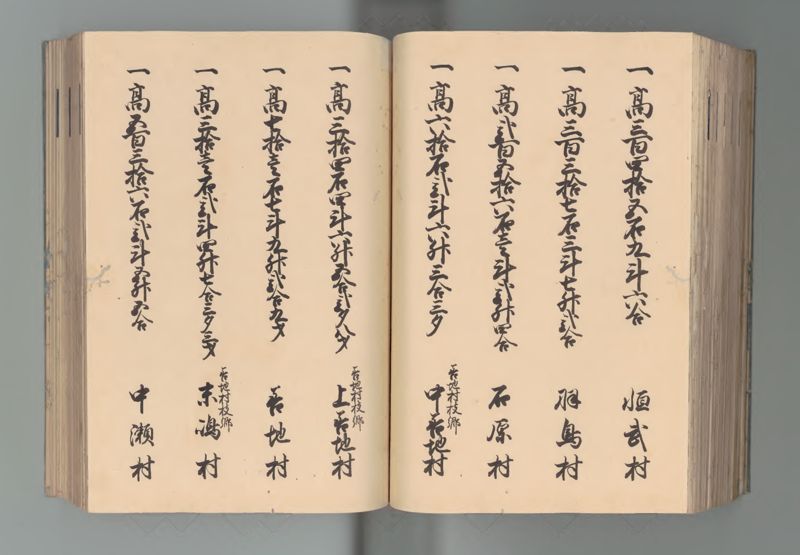 一高三百四拾五石九斗六合 恒武村
一高三百三拾七石三斗七升弐合 羽鳥村
一高弐百五拾六石壱斗弐升四合 石原村
一高六拾石弐斗六升三合三夕 善地村枝郷 中善地村
一高三拾四石四斗六升五合弐夕八才 善地村枝郷 上善地村
一高七拾壱石七斗九升弐合九才 善地村
一高三拾壱石弐斗四升七合三夕三才 善地村枝郷 末嶋村
一高五百三拾六石弐斗五升五合 中瀬村